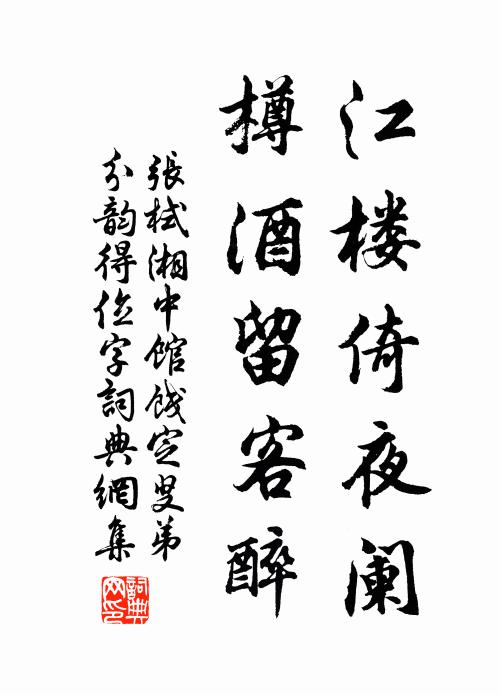 江楼倚夜阑
樽酒留客醉
張栻湘中館餞定叟弟
分韵得位字詞典網集
詞典
网印